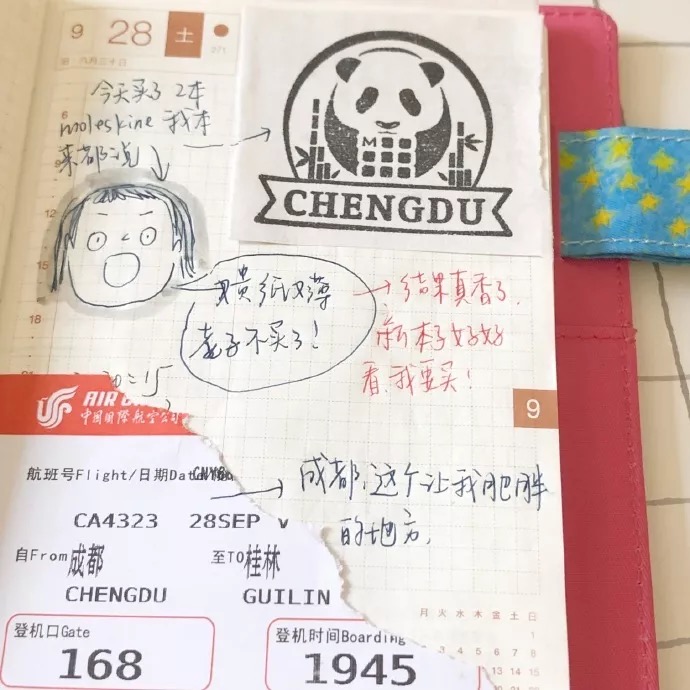 9 28 土
271
八月三十日
今天买了2本
moleskine 我本
来都说
M
CHENGDU
又贵纸又薄
老子不买了!
结果真香了,
新本子好好
看,我要买!
6
9
12
15
18
9
AIR
中国国际航空公司
航班号Flight/日期Date
CA4323 28SEP V
成都,这个让我肥胖
的地方,
自From 成都 至TO 桂林
CHENGDU GUILIN
月 火 水 木 金 土 日
1
5 6 7 8
13 14 15
登机口Gate 登机时间Boarding
168 1945